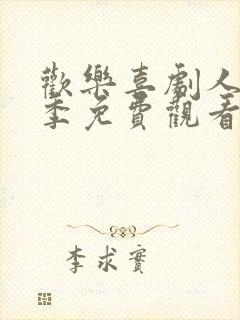 歡樂喜劇人
季免費觀看
李求實